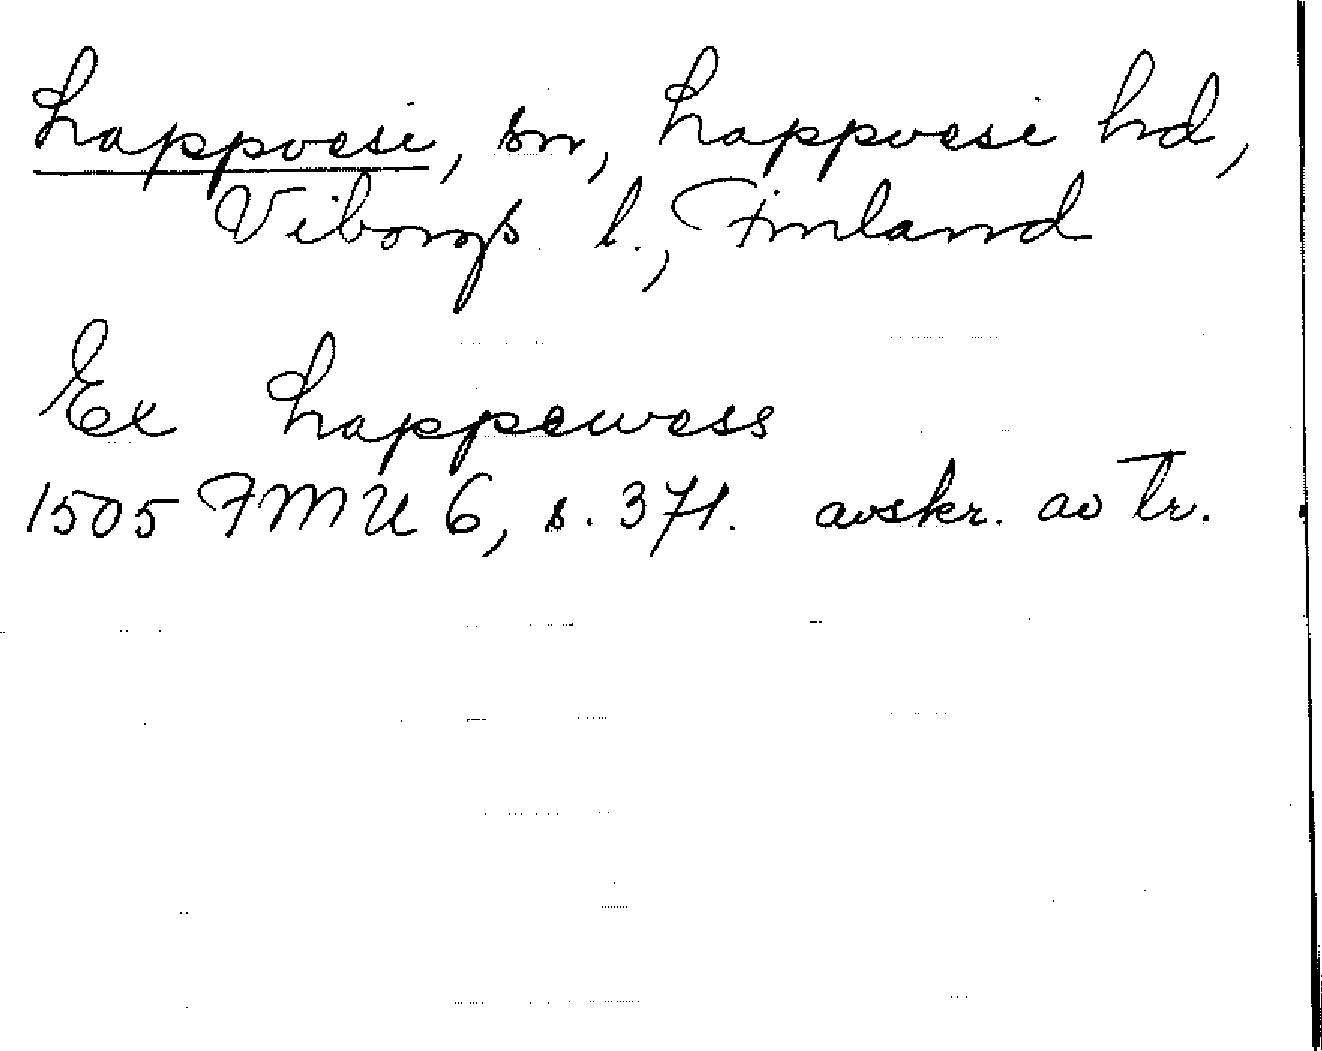 Lappvesi, sn, Lappvesi hd,
Viborgs l., Finland
Ex Lappewess
1505 FMU 6, s. 371. avskr. av tr.